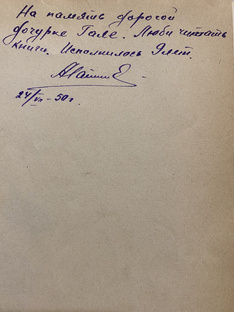 На память дорогой
дочурке Гале. Люби читать
книги. Исполнилось 9 лет.
24/VI-50г.